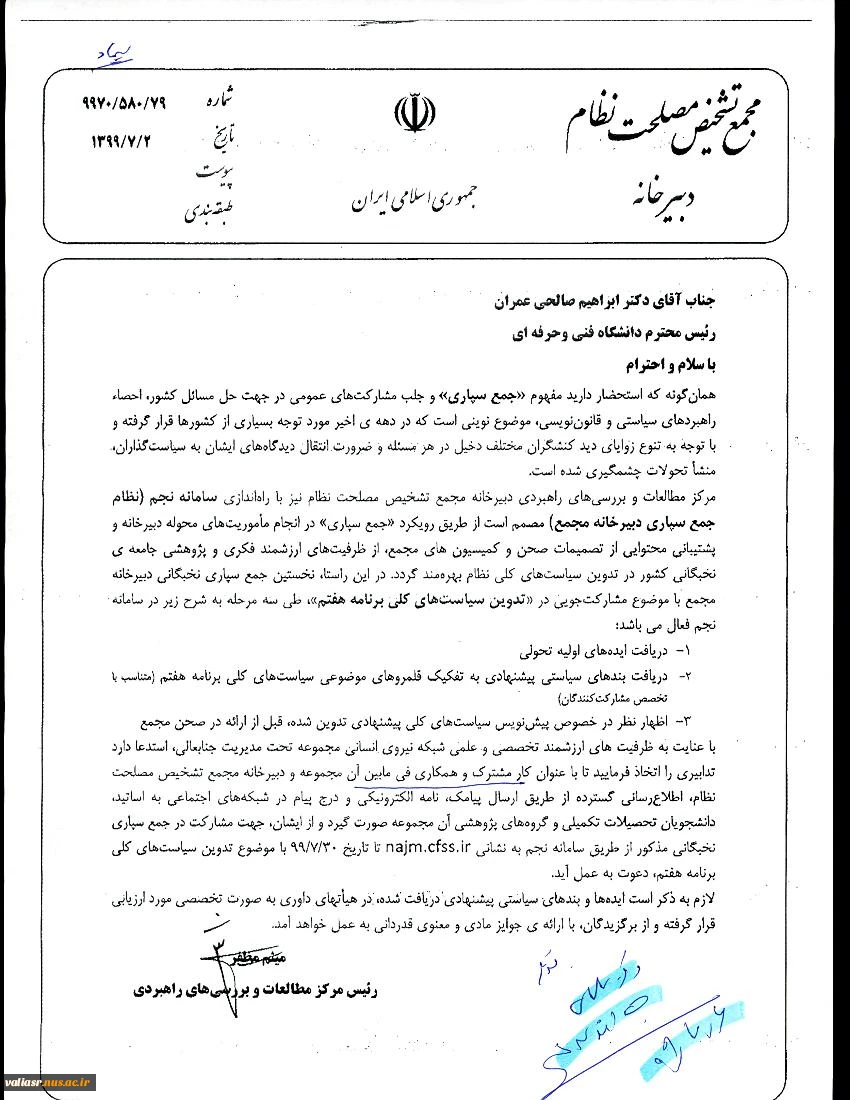 سیماد
مجمع تشخیص مصلحت نظام
دبیرخانه
جمهوری اسلامی ایران
شماره ۹۹۷۰/۵۸۰/۷۹
تاریخ ۱۳۹۹/۷/۲
پیوست
طبقه‌بندی
جناب آقای دکتر ابراهیم صالحی عمران
رئیس محترم دانشگاه فنی وحرفه ای
با سلام و احترام
همان‌گونه که استحضار دارید مفهوم «جمع سپاری» و جلب مشارکت‌های عمومی در جهت حل مسائل کشور، احصاء
راهبردهای سیاستی و قانون‌نویسی، موضوع نوینی است که در دهه ی اخیر مورد توجه بسیاری از کشورها قرار گرفته و
با توجه به تنوع زوایای دید کنشگران مختلف دخیل در هر مسئله و ضرورت انتقال دیدگاه‌های ایشان به سیاست‌گذاران،
منشأ تحولات چشمگیری شده است.
مرکز مطالعات و بررسی‌های راهبردی دبیرخانه مجمع تشخیص مصلحت نظام نیز با راه‌اندازی سامانه نجم (نظام
جمع سپاری دبیرخانه مجمع) مصمم است از طریق رویکرد «جمع سپاری» در انجام مأموریت‌های محوله دبیرخانه و
پشتیبانی محتوایی از تصمیمات صحن و کمیسیون های مجمع، از ظرفیت‌های ارزشمند فکری و پژوهشی جامعه ی
نخبگانی کشور در تدوین سیاست‌های کلی نظام بهره‌مند گردد. در این راستا، نخستین جمع سپاری نخبگانی دبیرخانه
مجمع با موضوع مشارکت‌جویی در «تدوین سیاست‌های کلی برنامه هفتم»، طی سه مرحله به شرح زیر در سامانه
نجم فعال می باشد:
۱- دریافت ایده‌های اولیه تحولی
۲- دریافت بندهای سیاستی پیشنهادی به تفکیک قلمروهای موضوعی سیاست‌های کلی برنامه هفتم (متناسب با
تخصص مشارکت‌کنندگان)
۳- اظهار نظر در خصوص پیش‌نویس سیاست‌های کلی پیشنهادی تدوین شده، قبل از ارائه در صحن مجمع
با عنایت به ظرفیت های ارزشمند تخصصی و علمی شبکه نیروی انسانی مجموعه تحت مدیریت جنابعالی، استدعا دارد
تدابیری را اتخاذ فرمایید تا با عنوان کار مشترک و همکاری فی مابین آن مجموعه و دبیرخانه مجمع تشخیص مصلحت
نظام، اطلاع‌رسانی گسترده از طریق ارسال پیامک، نامه الکترونیکی و درج پیام در شبکه‌های اجتماعی به اساتید،
دانشجویان تحصیلات تکمیلی و گروه‌های پژوهشی آن مجموعه صورت گیرد و از ایشان، جهت مشارکت در جمع سپاری
نخبگانی مذکور از طریق سامانه نجم به نشانی najm.cfss.ir تا تاریخ ۹۹/۷/۳۰ با موضوع تدوین سیاست‌های کلی
برنامه هفتم، دعوت به عمل آید.
لازم به ذکر است ایده‌ها و بندهای سیاستی پیشنهادی دریافت شده، در هیأتهای داوری به صورت تخصصی مورد ارزیابی
قرار گرفته و از برگزیدگان، با ارائه ی جوایز مادی و معنوی قدردانی به عمل خواهد آمد.
میثم مظفر
رئیس مرکز مطالعات و بررسی‌های راهبردی
valiasr.nus.ac.ir